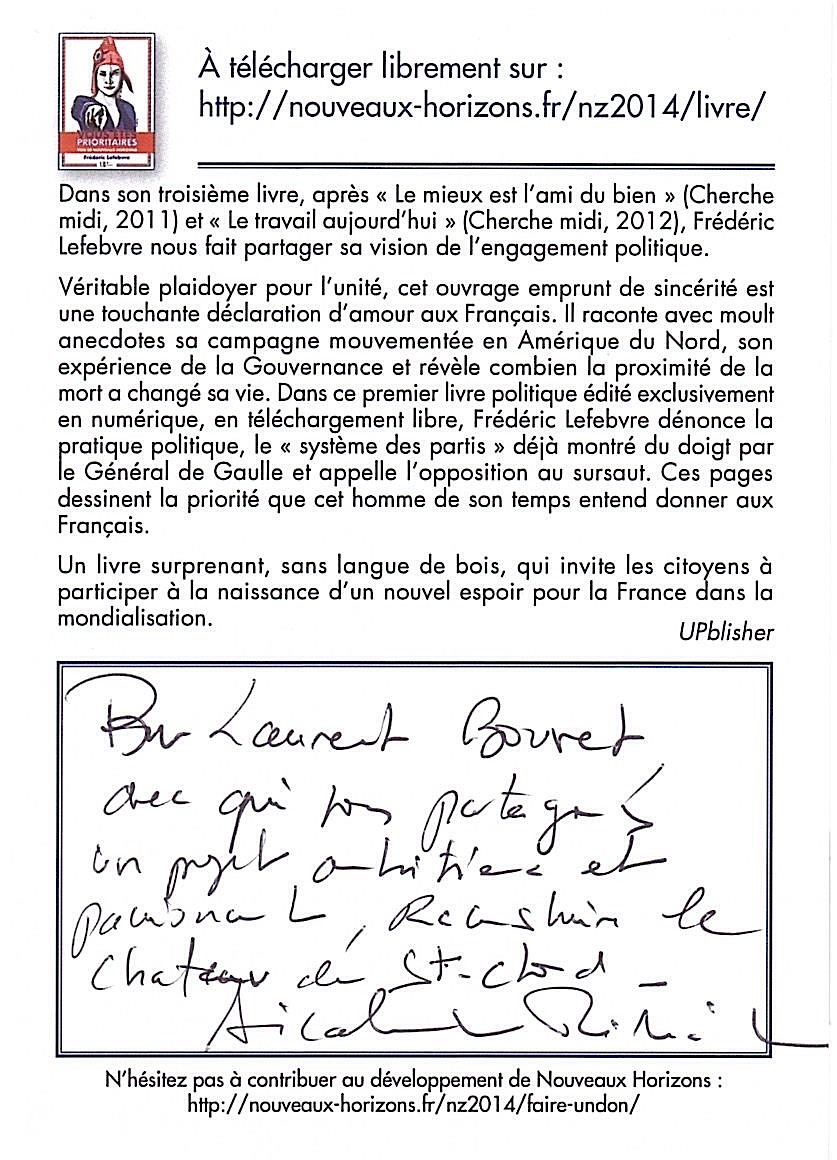 À télécharger librement sur :
http://nouveaux-horizons.fr/nz2014/livre/
VOUS ÊTES
PRIORITAIRES
Frédéric Lefebvre
Dans son troisième livre, après « Le mieux est l’ami du bien » (Cherche
midi, 2011) et « Le travail aujourd’hui » (Cherche midi, 2012), Frédéric
Lefebvre nous fait partager sa vision de l’engagement politique.
Véritable plaidoyer pour l’unité, cet ouvrage emprunt de sincérité est
une touchante déclaration d’amour aux Français. Il raconte avec moult
anecdotes sa campagne mouvementée en Amérique du Nord, son
expérience de la Gouvernance et révèle combien la proximité de la
mort a changé sa vie. Dans ce premier livre politique édité exclusivement
en numérique, en téléchargement libre, Frédéric Lefebvre dénonce la
pratique politique, le « système des partis » déjà montré du doigt par
le Général de Gaulle et appelle l’opposition au sursaut. Ces pages
dessinent la priorité que cet homme de son temps entend donner aux
Français.
Un livre surprenant, sans langue de bois, qui invite les citoyens à
participer à la naissance d’un nouvel espoir pour la France dans la
mondialisation.
UPblisher
Pour Laurent Bouvet
avec qui nous partageons
un projet ambitieux et
passionnant, Reconstruire le
Chateau de St-Cloud
Amicalement
N’hésitez pas à contribuer au développement de Nouveaux Horizons :
http://nouveaux-horizons.fr/nz2014/faire-undon/